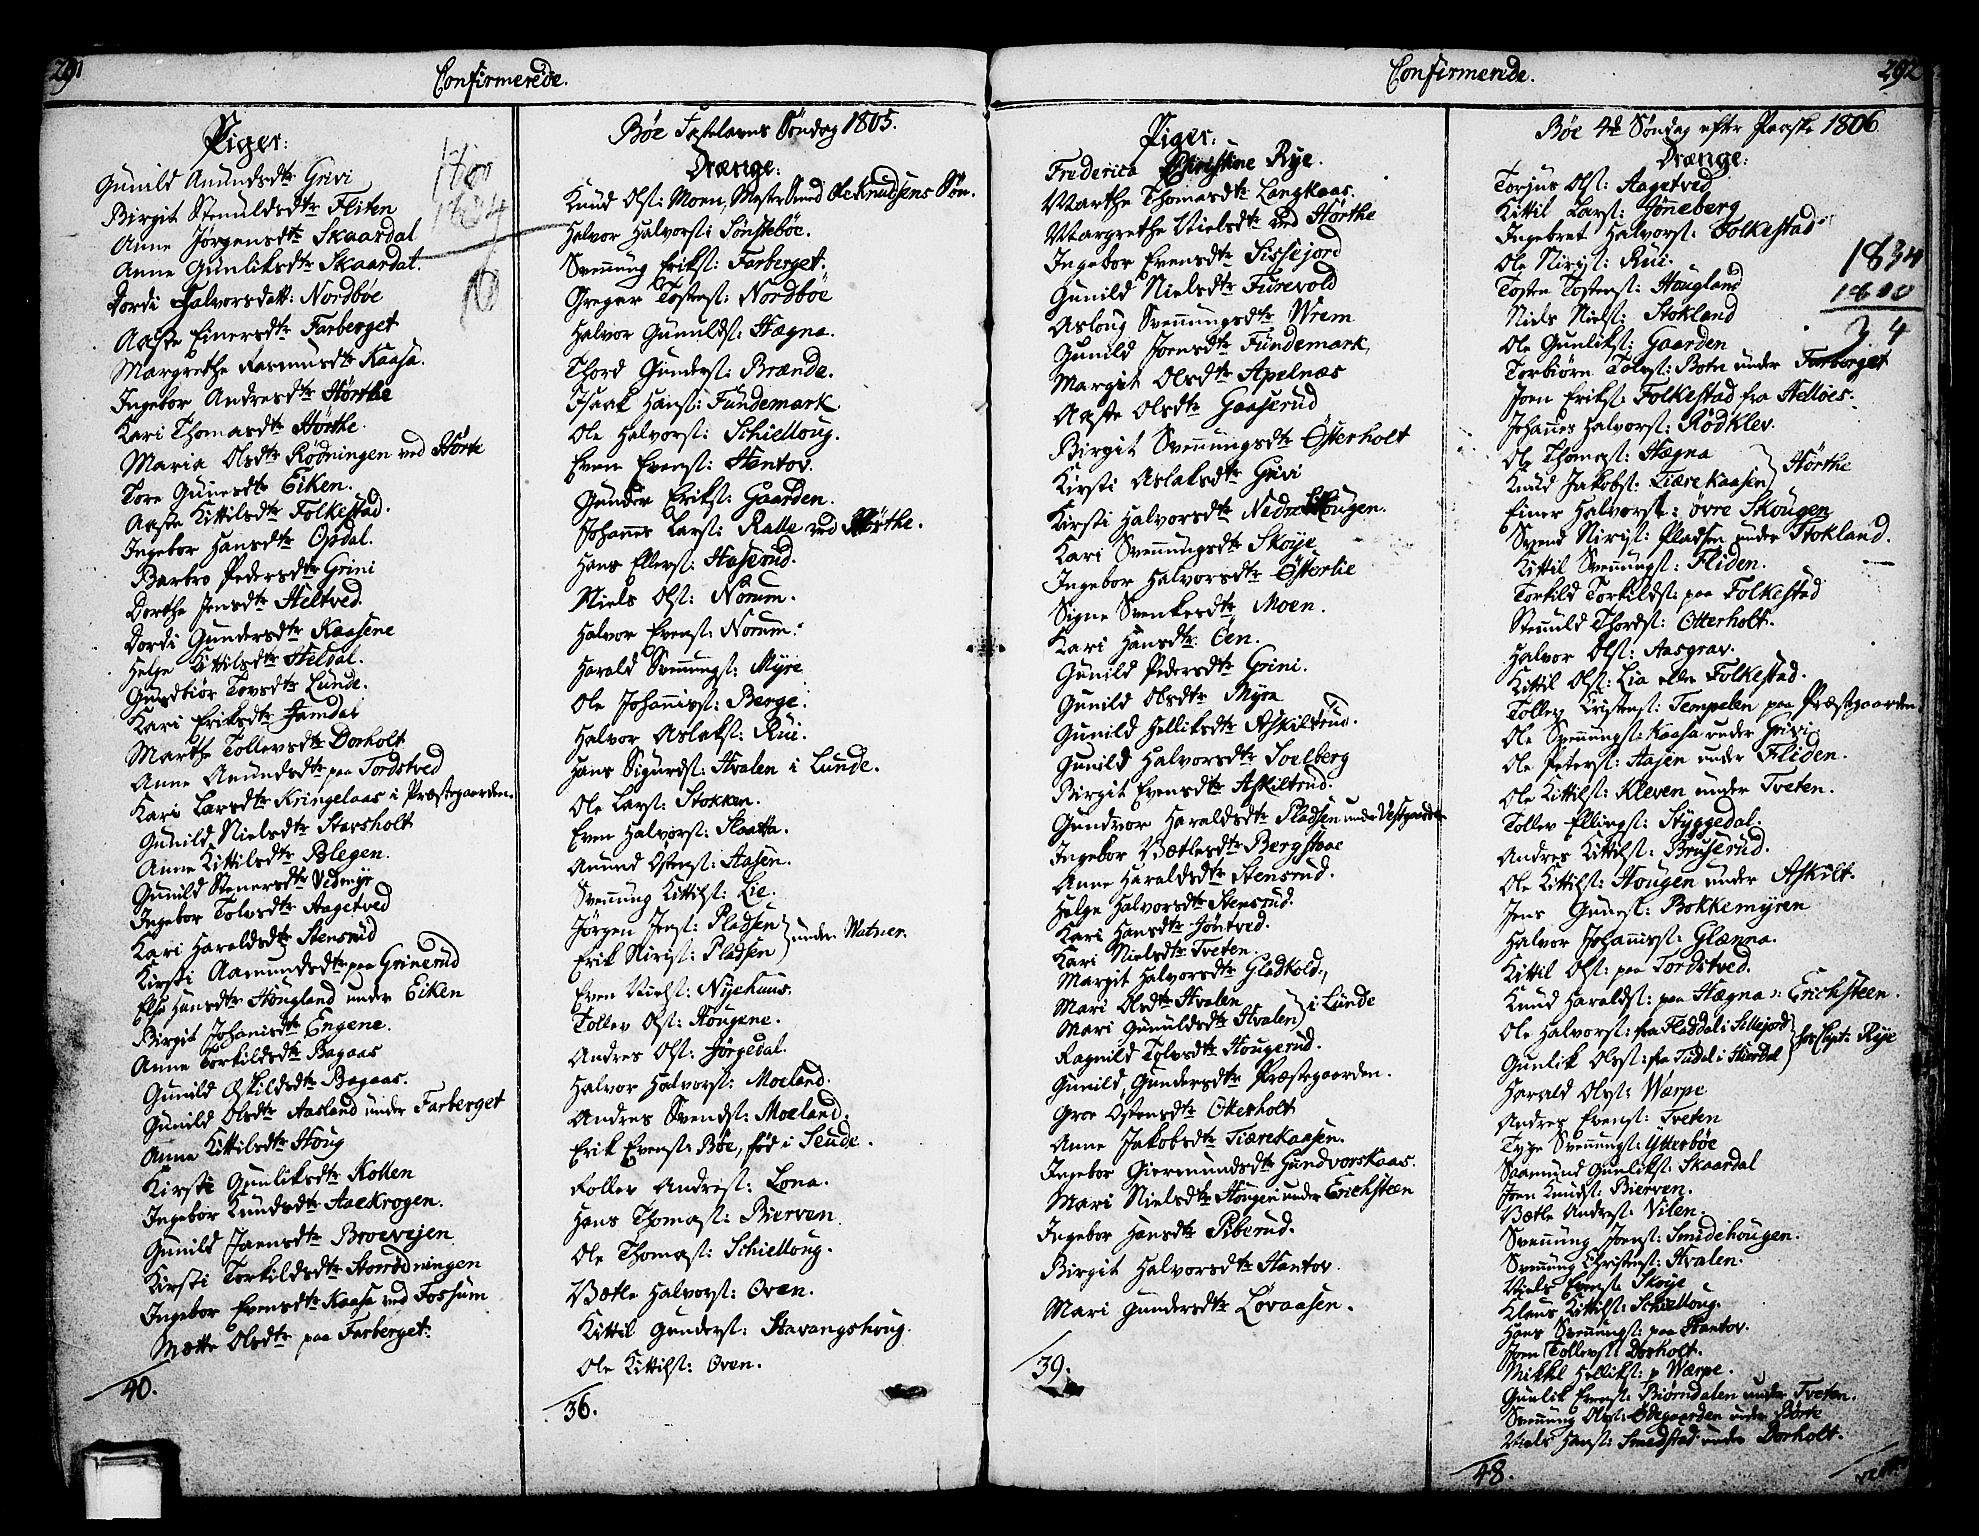 291
Confirmerede.
Piger:
Gunild Amundsdtr Grivi
Birgit Stenuldsdtr Fliten
Anne Jørgensdtr Skaardal
Anne Gunliksdtr Skaardal.
Dordi Halvorsdatt: Nordbøe
Aaste Einersdtr Farberget
Margrethe Rasmusdtr Kaasa.
Ingebor Andresdtr Hørthe
Kari Thomasdtr Hørthe.
Maria Olsdtr Rødningen ved Hørte
Tore Gunesdtr Eiken.
Aaste Kittilsdtr Folkestad.
Ingebor Hansdtr Opdal.
Barbro Pedersdtr Grini
Dorthe Jensdtr Heltved.
Dordi Gundersdtr Kaasene
Helge Kittilsdtr Hildal.
Gundbiør Tovsdtr Lunde.
Kari Eriksdtr Jamdal
Marthe Tollevsdtr Dorholt
Anne Amundsdtr paa Tordstved
Kari Larsdtr Kringelaas i Præstegaarden.
Gunild Nielsdtr Starsholt
Anne Kittilsdtr Blegen.
Gunild Stenersdtr Vedmyr
Ingebor Tolvsdtr Aagetved
Kari Haraldsdtr Stensrud
Kirsti Aamundsdtr paa Grinerud
Else Hansdtr Hougland under Eiken
Birgit Johanisdtr Engene.
Anne Torkildsdtr Bagaas
Gunild Eskildsdtr Bagaas.
Gunild Olsdtr Aasland under Farberget
Anne Kittilsdtr Houg
Kirsti Gunliksdtr Kollen
Ingebor Knudsdtr Aaekrogen.
Gunild Jaensdtr Broevejen
Kirsti Torkildsdtr Storødningen
Ingebor Evensdtr Kaasa ved Fossum
Mætte Olsdtr paa Farberget.
40.
Bøe Fastelavns Søndag 1805.
Drænge:
Knud Ols: Moen, Mester Smed Ole Knudsens Søn.
Halvor Halvors: Sønstebøe.
Svennung Eriks: Farberget.
Gregar Tostens: Nordbøe
Halvor Gunulds: Hægna.
Thord Gunders: Brænda.
Isaak Hans: Fundemark
Ole Halvors: Schielloug.
Even Evens: Hantov.
Gunder Eriks: Gaarden.
Johanes Lars: Ralle ved Hørthe.
Hans Ellevs: Haserud.
Niels Ols: Norum.
Halvor Evens: Norum.
Harald Svennungs: Myre
Ole Johanis: Berge.
Halvor Aslaks: Rui.
Hans Sigurds: Hvalen i Lunde.
Ole Lars: Stokken.
Even Halvors: Slaatta.
Amund Østens: Aasen.
Svennung Kittils: Lie.
Jørgen Jens: Pladsen
Erik Niris: Pladsen } under Watner.
Even Niels: Nyehuus.
Tollev Ols: Hougene.
Andres Ols: Jørgedal.
Halvor Halvors: Moeland.
Andres Svends: Moeland.
Erik Evens: Bøe, fød i Seude.
Tollev Andres: Lona.
Hans Thomas: Bierven
Ole Thomas: Schielloug.
Vætle Halvors: Oven.
Kittil Gunders: Stavangshoug.
Ole Kittils: Oven.
36.
Confirmerede.
Piger:
Frederica Christine Rye.
Marthe Thomasdtr Langkaas.
Margrethe Nielsdtr ved Hørthe
Ingebor Evensdtr Sissejord
Gunild Nielsdtr Furevold
Asloug Svennungsdtr Wrem
Gunild Joensdtr Fundemark
Margit Olsdtr Apelnæs
Aaste Olsdtr Gaaserud
Birgit Svennungsdtr Østerholt
Kirsti Aslaksdtr Grivi
Kirsti Halvorsdtr Nedre Skougen.
Kari Svennungsdtr Skoye
Ingebor Halvorsdtr Østerlie
Signe Svenkesdtr Moen.
Kari Hansdtr Øen.
Gunild Pedersdtr Grini.
Gunild Olsdtr Myra
Gunild Helliksdtr Askiltrud.
Gunild Halvorsdtr Soelberg
Birgit Evensdtr Askiltrud.
Gundvor Haraldsdtr Pladsen under Vestgaarden
Ingebor Vætlesdtr Bergstoae
Anne Haraldsdtr Stensrud.
Helge Halvorsdtr Stensrud.
Kari Hansdtr Jøntved.
Kari Nielsdtr Tveten
Margit Halvorsdtr Gladhold.
Mari Olsdtr Hvalen
Mari Gunuldsdtr Hvalen } i Lunde
Ragnild Tolvsdtr Hougerud.
Gunild Gundersdtr Præstegaarden.
Groe Østensdtr Otterholt
Anne Jakobsdtr Tiærekaasen.
Ingebor Giermundsdtr Gundvorskaas.
Mari Nielsdtr Hougen under Erichsteen
Ingebor Hansdtr Piberud.
Birgit Halvorsdtr Hantov.
Mari Gundersdtr Løvaasen.
39.
292
Bøe 4de Søndag efter Paaske 1806
Drænge:
Torjus Ols: Aagetved
Kittil Lars: Jøneberg
Ingebret Halvors: Folkestad
Ole Niris: Rui.
Tosten Tostens: Hougland
Niels Niels: Stokland
Ole Gunliks: Gaarden
Torbiørn Tolvs: Botn under Farberget
Joen Eriks: Folkestad fra Helløes.
Johanes Halvors: Rødklev.
Ole Thomas: Hægna
Knud Jakobs: Tiærekaasen } Hørthe
Einer Halvors: øvre Skougen
Svend Niris: Pladsen under Stokland.
Kittil Svennungs: Fliden.
Torkild Torkilds: paa Folkestad
Stenuld Thords: Otterholt.
Halvor Ols: Aasgrav.
Kittil Ols: Lia eller Folkestad.
Tollev Kristens: Tempelen paa Præstegaarden.
Ole Svennungs: Kaasa under Grivi
Ole Peters: Aasen under Fliden.
Ole Kittils: Kleven under Tveten.
Tollev Ellings: Styggedal.
Andres Kittils: Bruserud.
Ole Kittils: Hougen under Askilt.
Jens Guns: Bokkemyren
Halvor Johanis: Glænna.
Kittil Ols: paa Tordstved.
Knud Haralds: paa Hægna: Erichsteen.
Ole Halvors: fra Fladdal i Sillejord
Gunlik Ols: fra Tudal i Hierdal } hos Capt: Rye
Harald Ols: Værpe
Andres Evens: Tveten
Tyge Svennungs: Ytterbøe
Saamund Gunliks: Skaardal
Joen Knuds: Bierven.
Vætle Andres: Vilen.
Svennung Joens: Smidehougen.
Svennung Christens: Hvalen.
Niels Evens: Skoye
Klaus Kittils: Schielloug.
Hans Svennungs: paa Hantov.
Joen Tollevs: Dorholt.
Mikkel Helliks: p Værpe.
Gunlik Evens: Biørndalen under Tveten.
Svennung Ols: Ødegaarden under Børte
Niels Hans: Smedstad under Dorholt.
48.
1834
1800
34